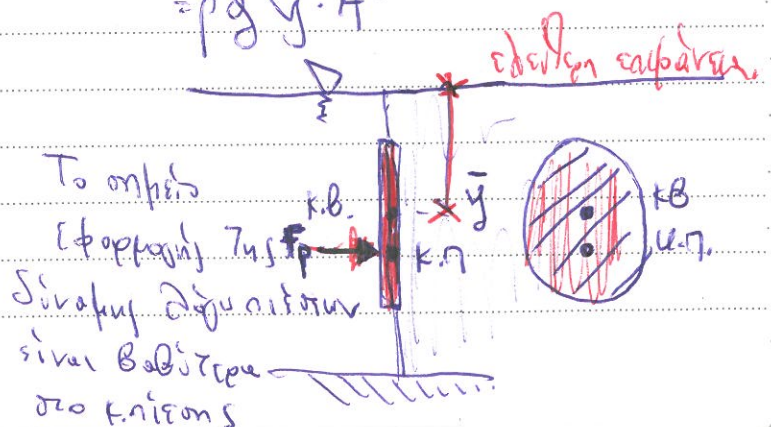 = ρg ȳ·A
ελεύθερη επιφάνεια.
Το σημείο
εφαρμογής της Fp
δύναμης λόγω πιέσεων
είναι βαθύτερα
στο κ.πίεσης
κ.β.
ȳ
κ.π
κβ
κ.π.